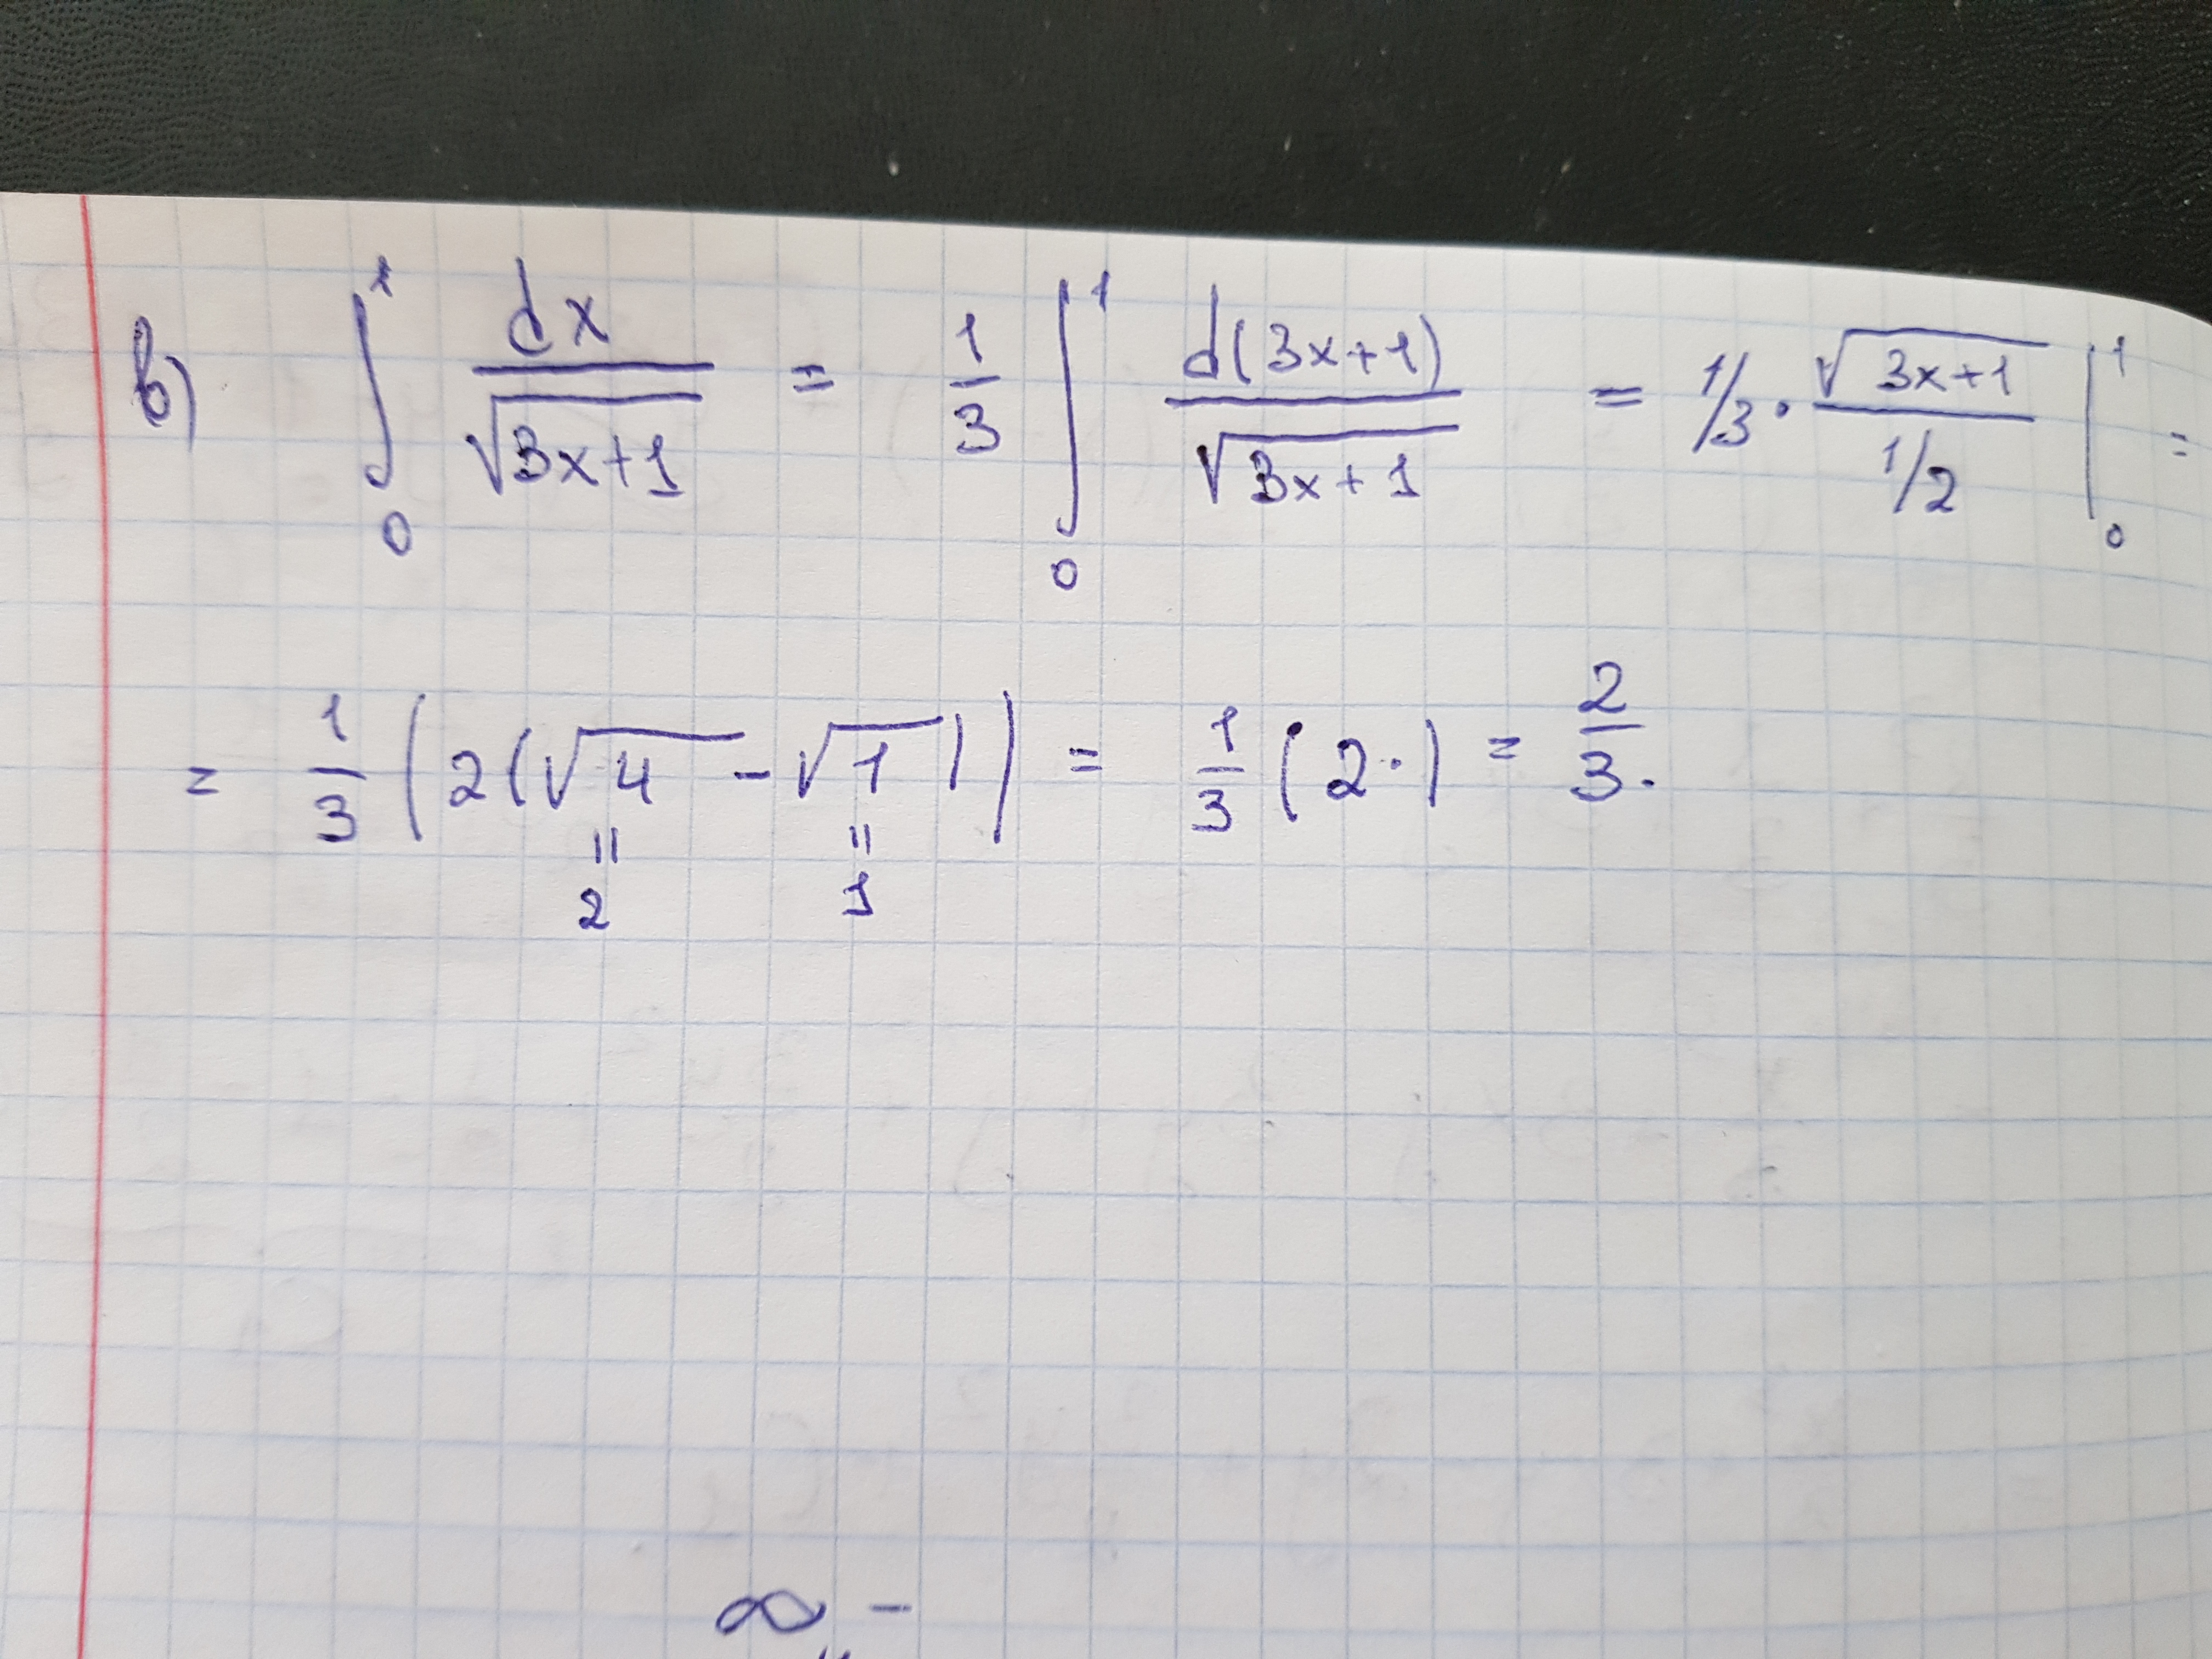 в) ∫₀¹ dx/√(3x+1) = 1/3 ∫₀¹ d(3x+1)/√(3x+1) = 1/3 · √(3x+1)/(1/2) |₀¹ =
= 1/3 (2(√4 - √1)) = 1/3 (2·) = 2/3.
|| ||
2 1
∞ -